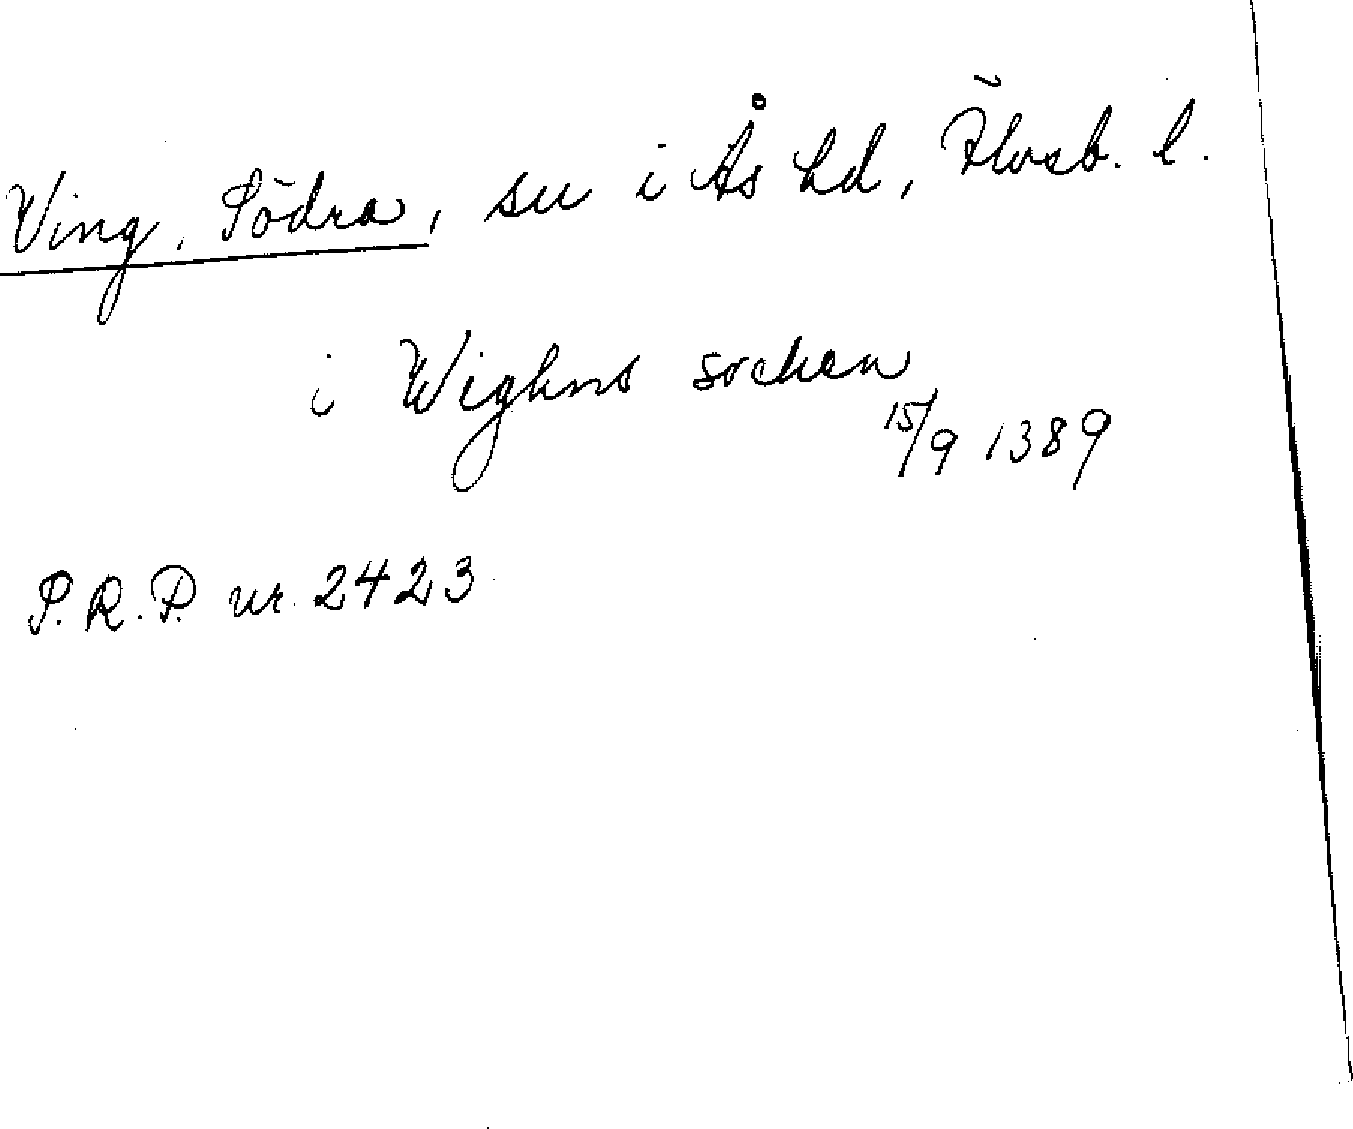 Ving, Södra, sn i Ås hd, Älvsb. l.
i Wighns sochen
15/9 1389
P.R.P. nr. 2423